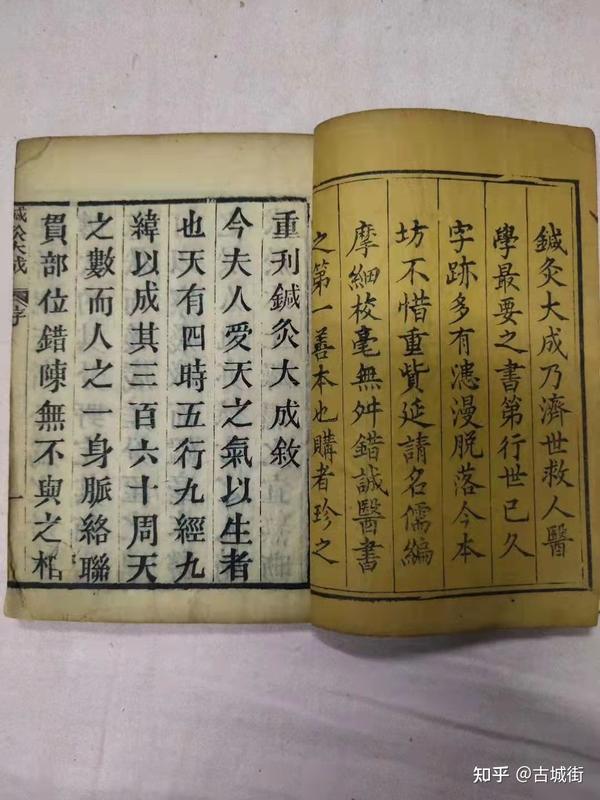 鍼灸大成乃濟世救人醫
學最要之書第行世已久
字跡多有漶漫脫落今本
坊不惜重貲延請名儒編
摩細校毫無舛錯誠醫書
之第一善本也購者珍之
重刊鍼灸大成敘
今夫人受天之氣以生者
也天有四時五行九經九
緯以成其三百六十周天
之數而人之一身脈絡聯
貫部位錯陳無不與之相
鍼灸大成
序
一
知乎 @古城街